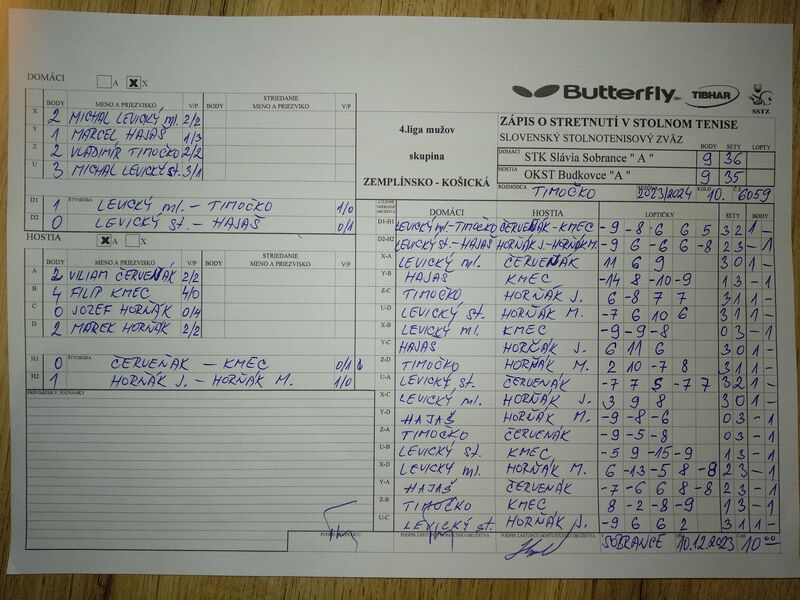 DOMÁCI A X X
Butterfly TIBHAR SSTZ
BODY MENO A PRIEZVISKO V/P BODY STRIEDANIE MENO A PRIEZVISKO V/P
X 2 MICHAL LEVICKÝ ml. 2/2
Y 1 MARCEL HAJAŠ 1/3
Z 2 VLADIMÍR TIMOČKO 2/2
U 3 MICHAL LEVICKÝ st. 3/1
D1 1 ŠTVORHRA LEVICKÝ ml. - TIMOČKO 1/0
D2 0 LEVICKÝ st. - HAJAŠ 0/1
HOSTIA X A X
BODY MENO A PRIEZVISKO V/P BODY STRIEDANIE MENO A PRIEZVISKO V/P
A 2 VILIAM ČERVEŇÁK 2/2
B 4 FILIP KMEC 4/0
C 0 JOZEF HORŇÁK 0/4
D 2 MAREK HORŇÁK 2/2
H1 0 ŠTVORHRA ČERVEŇÁK - KMEC 0/1
H2 1 HORŇÁK J. - HORŇÁK M. 1/0
PRIPOMIENKY, POZNÁMKY
4.liga mužov
skupina
ZEMPLÍNSKO - KOŠICKÁ
ZÁPIS O STRETNUTÍ V STOLNOM TENISE
SLOVENSKÝ STOLNOTENISOVÝ ZVÄZ BODY SETY LOPTY
DOMÁCI STK Slávia Sobrance " A " 9 36
HOSTIA OKST Budkovce "A " 9 35
ROZHODCA TIMOČKO SEZÓNA 2023/2024 KOLO 10. Č.Z. 6059
DOMÁCI HOSTIA LOPTIČKY SETY BODY
D1-H1 LEVICKÝ ml-TIMOČKO ČERVEŇÁK-KMEC -9 -8 6 6 5 3 2 1 -
D2-H2 LEVICKÝ st.-HAJAŠ HORŇÁK J.-HORŇÁK M. -9 6 -6 6 -8 2 3 - 1
X-A LEVICKÝ ml. ČERVEŇÁK 11 6 9 3 0 1 -
Y-B HAJAŠ KMEC -14 8 -10 -9 1 3 - 1
Z-C TIMOČKO HORŇÁK J. 6 -8 7 7 3 1 1 -
U-D LEVICKÝ st. HORŇÁK M. -7 6 10 6 3 1 1 -
X-B LEVICKÝ ml. KMEC -9 -9 -8 0 3 - 1
Y-C HAJAŠ HORŇÁK J. 6 11 6 3 0 1 -
Z-D TIMOČKO HORŇÁK M. 2 10 -7 8 3 1 1 -
U-A LEVICKÝ st. ČERVEŇÁK -7 7 5 -7 7 3 2 1 -
X-C LEVICKÝ ml. HORŇÁK J. 3 9 8 3 0 1 -
Y-D HAJAŠ HORŇÁK M. -9 -8 -6 0 3 - 1
Z-A TIMOČKO ČERVEŇÁK -9 -5 -8 0 3 - 1
U-B LEVICKÝ st. KMEC -5 9 -15 -9 1 3 - 1
X-D LEVICKÝ ml. HORŇÁK M. 6 -13 -5 8 -8 2 3 - 1
Y-A HAJAŠ ČERVEŇÁK -7 -6 6 8 -8 2 3 - 1
Z-B TIMOČKO KMEC 8 -2 -8 -9 1 3 - 1
U-C LEVICKÝ st. HORŇÁK J. -9 6 6 2 3 1 1 -
SOBRANCE 10.12.2023 10 00